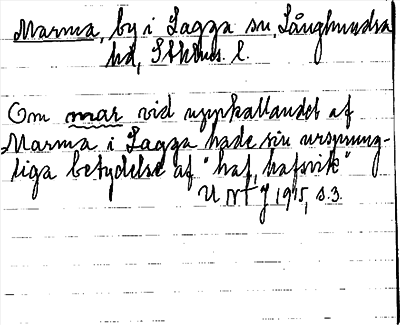 Marma, by i Lagga sn, Långhundra
hd, Sthlms. l.
Om mar vid uppkallandet af
Marma i Lagga hade sin ursprung-
liga betydelse af "haf, hafsvik"
UNT 1915, s. 3.